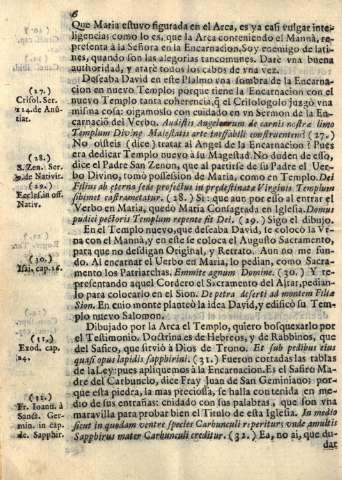 6
Que Maria estuvo figurada en el Arca, es ya casi vulgar inte-
ligencia: como lo es, que la Arca conteniendo el Mannà, re-
presenta à la Señora en la Encarnacion, Soy enemigo de lati-
nes, quando son las alegorias tancomunes. Darè vna buena
authoridad, y atarè todos los cabos de vna vez.
Deseaba David en este Psalmo vna sombra de la Encarna-
cion en nuestro Templo: porque tiene la Encarnacion con el
(27.)
Crisol. Ser.
114. de Anũ-
tiat.
nuevo Templo tanta coherencia, q̃ el Crisologolo juzgò vna
misma cosa: oigamoslo con cuidado en vn Sermon de la En-
carnaciõ del Verbo. Audistis Angelum de carnis nostræ limo
Templum Divinæ Maiestatis arte ineffabili construentem? (27.)
No oisteis (dice) tratar al Angel de la Encarnacion? Pues
era dedicar Templo nuevo à su Magestad. No duden de esso,
(28.)
S. Zen. Ser.
de Nativit.
dice el Padre San Zenon, que al partirse de su Padre el Ver-
bo Divino, tomò possession de Maria, como en Templo. Dei
(29.)
Ecclef. in off.
Nativ.
Filius ab eterna sede profectus in prædestinatæ Virginis Templum
sibimet castrametatur. (28.) Si: que aun por esso al entrar el
Verbo en Maria, quedò Maria Consagrada en Iglesia. Domus
pudici pectoris Templum repente fit Dei. (29.) Sigo el dibujo.
En el Templo nuevo, que deseaba David, se colocò la Vr-
na con el Mannà, y en este se coloca el Augusto Sacramento,
para que no desdigan Original, y Retrato. Aun no me fun-
do. Al encarnar el Verbo en Maria, lo pedian, como Sacra-
(30.)
Isai. cap. 16.
mento los Patriarchas. Emmite agnum Domine. (30.) Y re-
presentando aquel Cordero el Sacramento del Altar, pedian-
lo para colocarlo en el Sion. De petra deserti ad montem Filiæ
Sion. En estio monte plantò la idea David, y edificò su Tem-
plo nuevo Salomon.
Dibujado por la Arca el Templo, quiero bosquexarlo por
(31.)
Exod. cap.
24.
el Testimonio. Doctrina es de Hebreos, y de Rabinos, que
del Safico, que sirviò à Dios de Trono. Et sub pedibus eius
quasi opus lapidis sapphirini. (31.) Fueron cortadas las tablas
de la Ley: pues apliquemos à la Encarnacion. Es el Safiro Ma-
dre del Carbunclo, dice Fray Juan de San Geminiano: por-
que esta piedra, la mas preciossa, se halla contenida en me-
(32.)
Fr. Ioann. à
Sanct. Ger-
min. in cap.
de. Sapphir.
dio de sus entrañas: cuidado con sus palabras, que son vna
maravilla para probar bien el Titulo de esta Iglesia. In medio
sicut in quodam ventre species Carbunculi reperitur: vnde amultis
Sapphirus mater Carbunculi creditur. (32.) Ea, no ai, que du-
dar